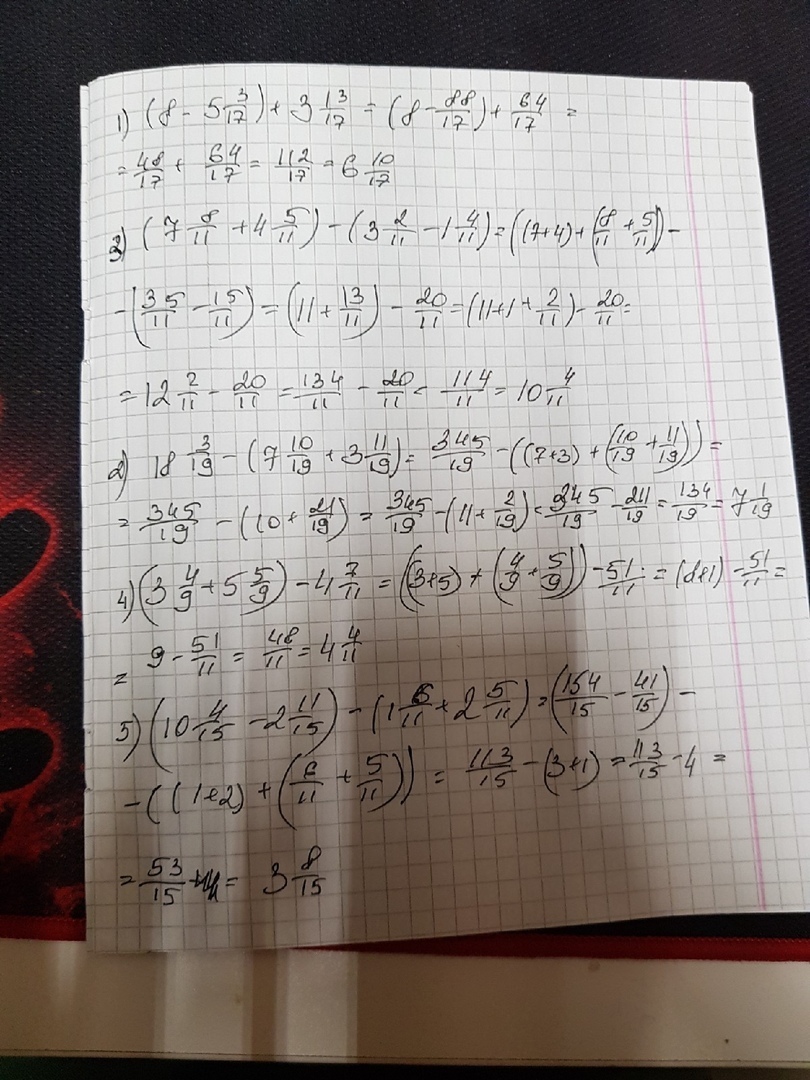 1) (8 - 5 3/17) + 3 13/17 = (8 - 88/17) + 64/17 =
= 48/17 + 64/17 = 112/17 = 6 10/17
3) (7 8/11 + 4 5/11) - (3 2/11 - 1 4/11) = ((7+4) + (8/11 + 5/11)) -
- (35/11 - 15/11) = (11 + 13/11) - 20/11 = (11+1+ 2/11) - 20/11 =
= 12 2/11 - 20/11 = 134/11 - 20/11 = 114/11 = 10 4/11
2) 18 3/19 - (7 10/19 + 3 11/19) = 345/19 - ((7+3) + (10/19 + 11/19)) =
= 345/19 - (10 + 21/19) = 345/19 - (11 + 2/19) = 345/19 - 211/19 = 134/19 = 7 1/19
4) (3 4/9 + 5 5/9) - 4 7/11 = ((3+5) + (4/9 + 5/9)) - 51/11 = (8+1) - 51/11 =
= 9 - 51/11 = 48/11 = 4 4/11
5) (10 4/15 - 2 11/15) - (1 6/11 + 2 5/11) = (154/15 - 41/15) -
- ((1+2) + (6/11 + 5/11)) = 113/15 - (3+1) = 113/15 - 4 =
= 53/15 = 3 8/15